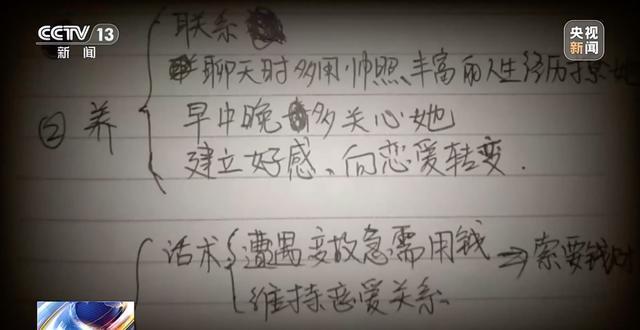 CCTV 13
新闻
央视
新闻
联系
聊天时多用帅照、丰富的人生经历
② 养
早中晚多关心她
建立好感、向恋爱转变.
话术 遭遇变故急需用钱 ⇒ 索要钱
维持恋爱关系